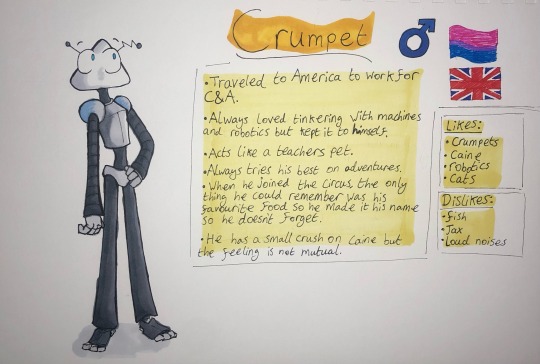 Crumpet
• Traveled to America to work for
C&A.
• Always loved tinkering with machines
and robotics but kept it to himself.
• Acts like a teachers pet.
• Always tries his best on adventures.
• When he joined the circus, the only
thing he could remember was his
favourite food so he made it his name
so he doesnt forget.
• He has a small crush on Caine but
the feeling is not mutual.
Likes:
• Crumpets
• Caine
• robotics
• Cats
Dislikes:
• fish
• Jax
• Loud noises